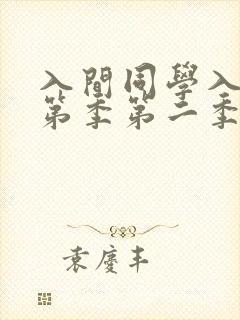 入間同學入
第季第二季
袁慶丰